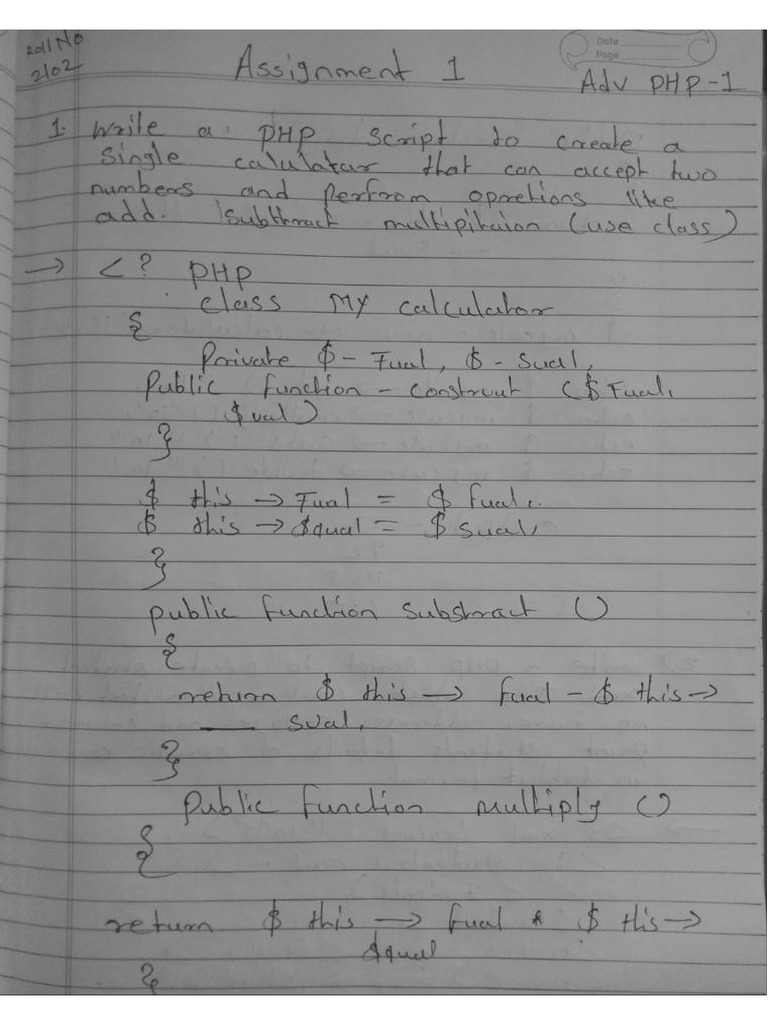 Roll No
2102
Date
Page
Assignment 1
Adv PHP-1
1. Write a PHP script to create a
single calulator that can accept two
numbers and perfrom opretions like
add. Subthract multipitaion (use class)
→ <? PHP
class MY calculator
{
Private $ - Fval, $ - Sval,
Public function - construct ($ Fval,
$ val)
}
$ this → Fval = $ fval,
$ this → $qual = $ sval,
}
public function substract ()
{
return $ this → fval - $ this →
sval,
}
Public function multiply ()
{
return $ this → fval * $ this →
$qual
{